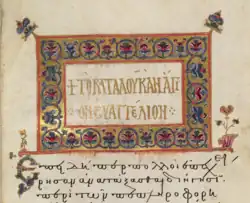 + ΤΟ ΚΑΤΑ ΛΟΥΚΑΝ ΑΓΙ
ΟΝ ΕΥΑΓΓΕΛΙΟΝ
Ἐπειδήπερ πολλοὶ
ρησαν ἀνατάξασθαι διήγησι
περὶ τῶν πεπληροφορη